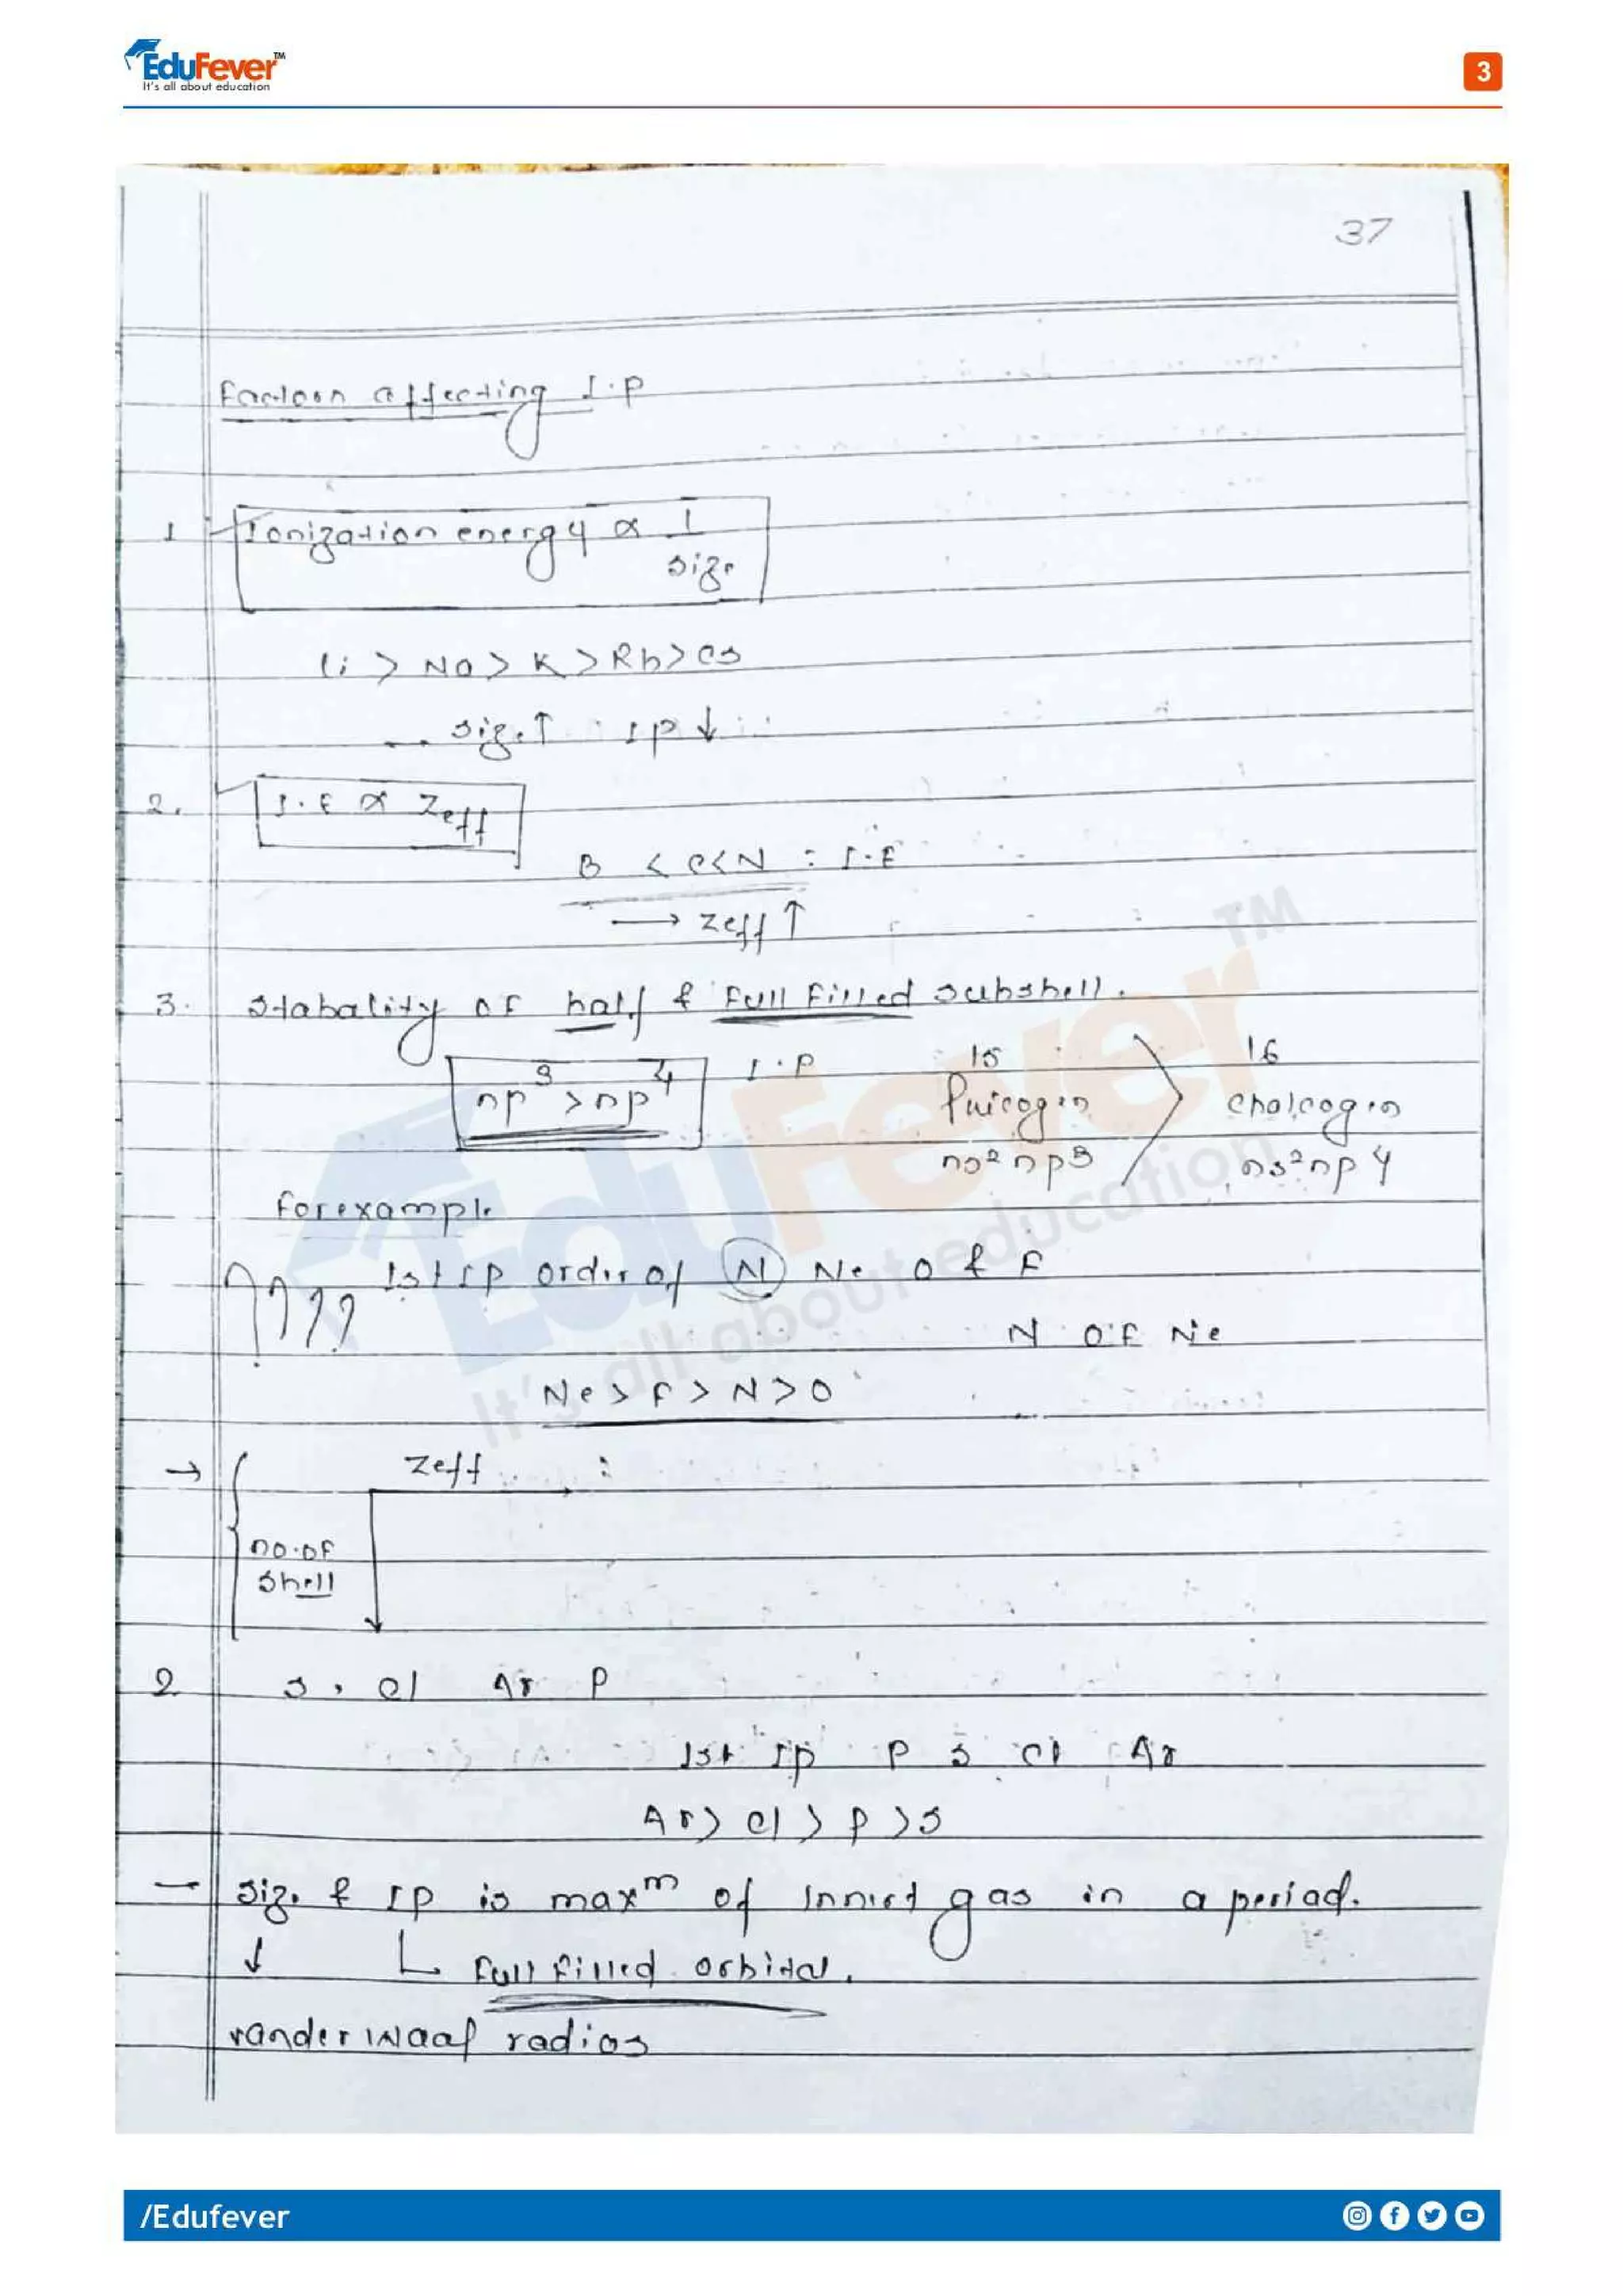 EduFever™
It's all about education
3
37
Factors affecting I.P
1 Ionization energy ∝ 1
size
Li > Na > K > Rb > Cs
size ↑ Ip ↓
2. I.E ∝ Zeff
B < C < N : I.E
→ Zeff ↑
3. Stabality of half & Full Filled subshell.
np³ > np⁴ I.P 15 > 16
Pnicogen chalcogen
ns² np³ ns² np⁴
For example
1st IP order of N Ne O & F
N O F Ne
Ne > F > N > O
→ Zeff
no. of
shell
2 S, Cl Ar P
1st Ip P S Cl Ar
Ar > Cl > P > S
— size & IP is maxᵐ of Innert gas in a period.
↓ Full Filled orbital.
vander waal radios
EduFever™
It's all about education
/Edufever